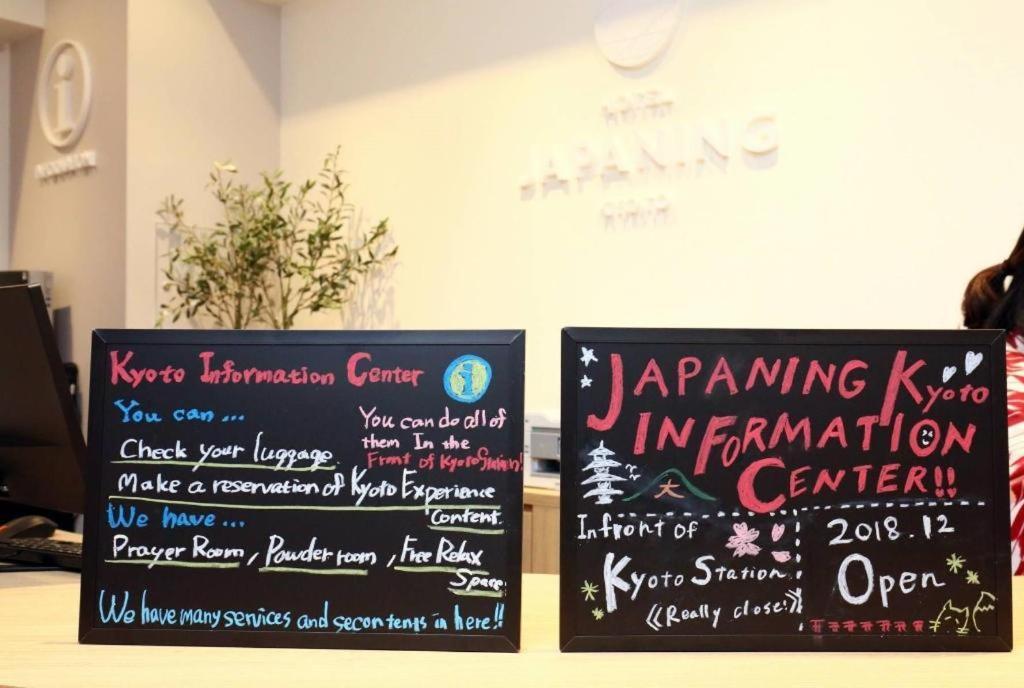 JAPANING
Kyoto Information Center
You can...
You can do all of
them In the
Front of Kyoto Station!
Check your luggage
Make a reservation of Kyoto Experience
Content.
We have...
Prayer Room, Powder room, Free Relax
Space
We have many services and secontents in here!!
JAPANING Kyoto
INFORMATION
CENTER!!
大
In front of
Kyoto Station
《Really close!》
2018.12
Open